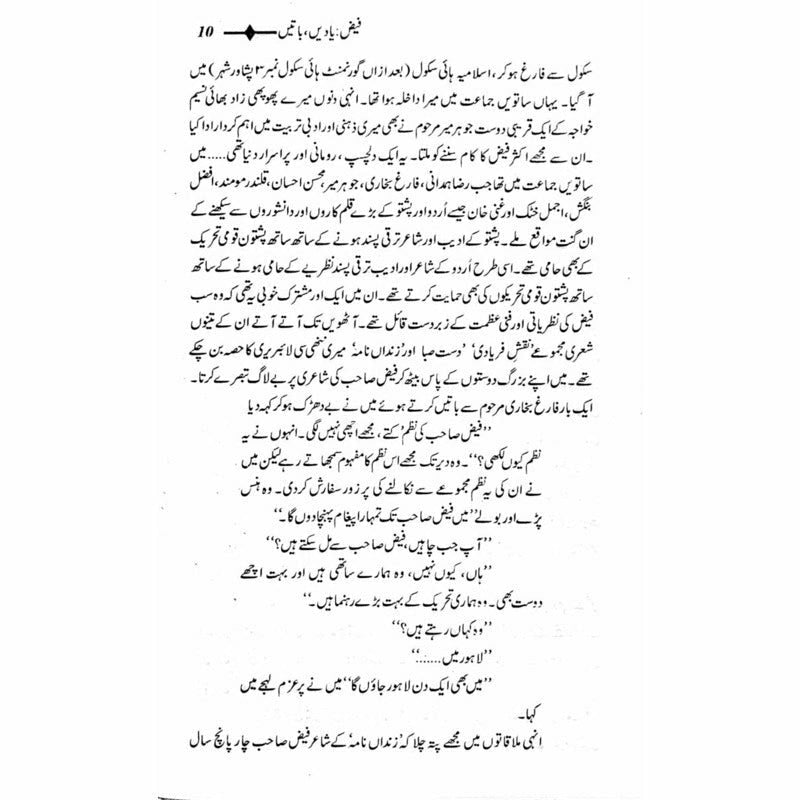 فیض: یادیں، باتیں 10
سکول سے فارغ ہو کر، اسلامیہ ہائی سکول (بعد ازاں گورنمنٹ ہائی سکول نمبر ۳ پشاور شہر) میں
آ گیا۔ یہاں ساتویں جماعت میں میرا داخلہ ہوا تھا۔ انہی دنوں میرے پھوپھی زاد بھائی نسیم
خواجہ کے ایک قریبی دوست جوہر میر مرحوم نے بھی میری ذہنی اور ادبی تربیت میں اہم کردار ادا کیا
۔ان سے مجھے اکثر فیض کا کام سننے کو ملتا۔ یہ ایک دلچسپ، رومانی اور پراسرار دنیا تھی.....میں
ساتویں جماعت میں تھا جب رضا ہمدانی، فارغ بخاری، جوہر میر، محسن احسان، قلندر مومند، افضل
بنگش، اجمل خٹک اور غنی خان جیسے اُردو اور پشتو کے بڑے قلم کاروں اور دانشوروں سے سیکھنے کے
ان گنت مواقع ملے۔ پشتو کے ادیب اور شاعر ترقی پسند ہونے کے ساتھ ساتھ پشتون قومی تحریک
کے بھی حامی تھے۔ اسی طرح اُردو کے شاعر اور ادیب ترقی پسند نظریے کے حامی ہونے کے ساتھ
ساتھ پشتون قومی تحریکوں کی بھی حمایت کرتے تھے۔ ان میں ایک اور مشترک خوبی یہ تھی کہ وہ سب
فیض کی نظریاتی اور فنی عظمت کے زبردست قائل تھے۔ آٹھویں تک آتے آتے ان کے تینوں
شعری مجموعے ’نقشِ فریادی‘ ’دست صبا‘ اور ’زنداں نامہ‘ میری ننھی سی لائبریری کا حصہ بن چکے
تھے۔ میں اپنے بزرگ دوستوں کے پاس بیٹھ کر فیض صاحب کی شاعری پر بے لاگ تبصرے کرتا۔
ایک بار فارغ بخاری مرحوم سے باتیں کرتے ہوئے میں نے بے دھڑک ہو کر کہہ دیا
’’فیض صاحب کی نظم ’کتے‘، مجھے اچھی نہیں لگی۔ انہوں نے یہ
نظم کیوں لکھی؟‘‘۔ وہ دیر تک مجھے اس نظم کا مفہوم سمجھاتے رہے لیکن میں
نے ان کی یہ نظم مجموعے سے نکالنے کی پرزور سفارش کر دی۔ وہ ہنس
پڑے اور بولے ’’میں فیض صاحب تک تمہارا پیغام پہنچا دوں گا۔‘‘
’’آپ جب چاہیں، فیض صاحب سے مل سکتے ہیں؟‘‘
’’ہاں، کیوں نہیں، وہ ہمارے ساتھی ہیں اور بہت اچھے
دوست بھی۔ وہ ہماری تحریک کے بہت بڑے رہنما ہیں۔‘‘
’’وہ کہاں رہتے ہیں؟‘‘
’’لاہور میں.....‘‘
’’میں بھی ایک دن لاہور جاؤں گا‘‘ میں نے پرعزم لہجے میں
کہا۔
انہی ملاقاتوں میں مجھے پتہ چلا کہ ’زنداں نامہ‘ کے شاعر فیض صاحب چار پانچ سال